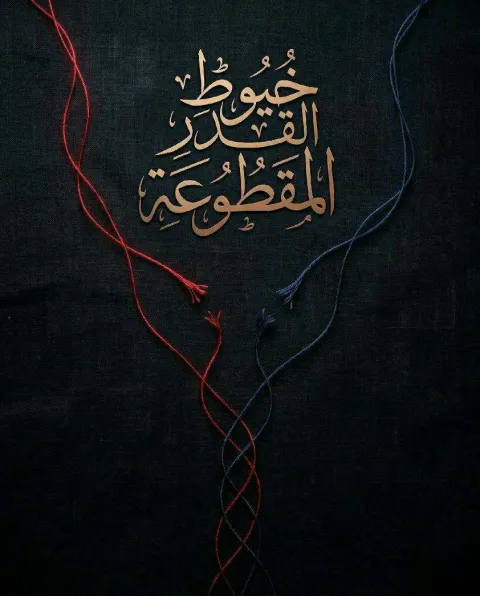 خُيُوط
القَدَرِ
المَقطُوعَة